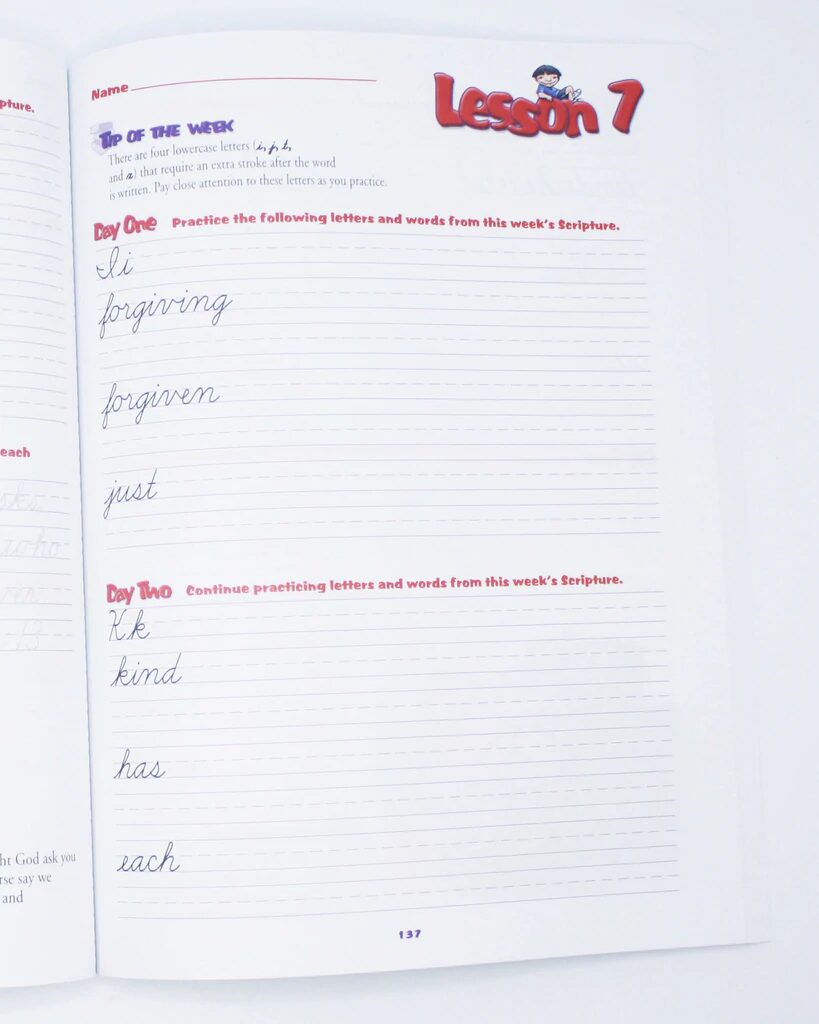 pture.
each
who
ht God ask you
rse say we
and
Name
Lesson 7
Tip of the Week
There are four lowercase letters (i, j, t,
and x) that require an extra stroke after the word
is written. Pay close attention to these letters as you practice.
Day One Practice the following letters and words from this week's Scripture.
Ii
forgiving
forgiven
just
Day Two Continue practicing letters and words from this week's Scripture.
Kk
kind
has
each
137